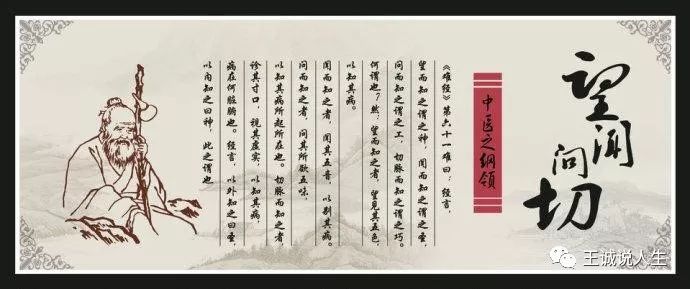 望闻问切
中医之纲领
《难经》第六十一难曰：经言，
望而知之谓之神，闻而知之谓之圣，
问而知之谓之工，切脉而知之谓之巧。
何谓也？然：望而知之者，望见其五色，
以知其病。
闻而知之者，闻其五音，以别其病。
问而知之者，问其所欲五味，
以知其病所起所在也。切脉而知之者，
诊其寸口，视其虚实，以知其病，
病在何脏腑也。经言，以外知之曰圣，
以内知之曰神，此之谓也
王诚说人生